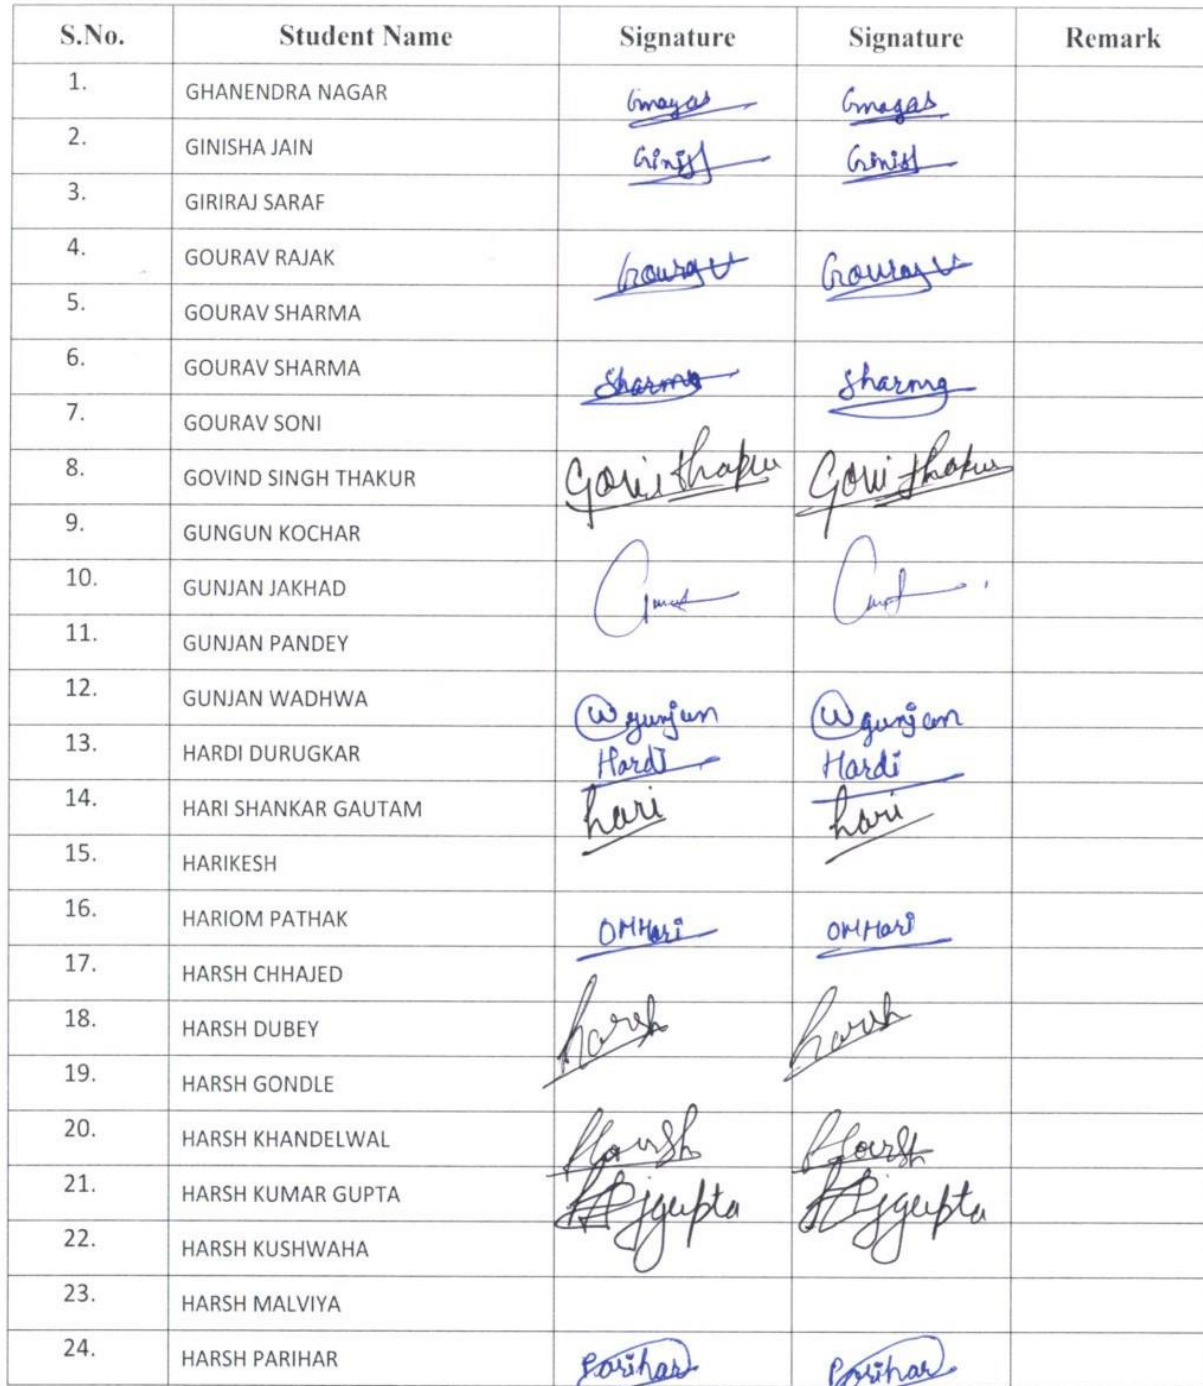 S.No. Student Name Signature Signature Remark
1. GHANENDRA NAGAR Gnagar Gnagar
2. GINISHA JAIN Ginish Ginish
3. GIRIRAJ SARAF
4. GOURAV RAJAK Gourav Gourav
5. GOURAV SHARMA
6. GOURAV SHARMA Sharma Sharma
7. GOURAV SONI
8. GOVIND SINGH THAKUR Govi thakur Govi thakur
9. GUNGUN KOCHAR
10. GUNJAN JAKHAD
11. GUNJAN PANDEY
12. GUNJAN WADHWA W gunjan W gunjan
13. HARDI DURUGKAR Hardi Hardi
14. HARI SHANKAR GAUTAM hari hari
15. HARIKESH
16. HARIOM PATHAK OMHari OMHari
17. HARSH CHHAJED
18. HARSH DUBEY harsh harsh
19. HARSH GONDLE
20. HARSH KHANDELWAL Harsh Harsh
21. HARSH KUMAR GUPTA gupta gupta
22. HARSH KUSHWAHA
23. HARSH MALVIYA
24. HARSH PARIHAR Parihar Parihar